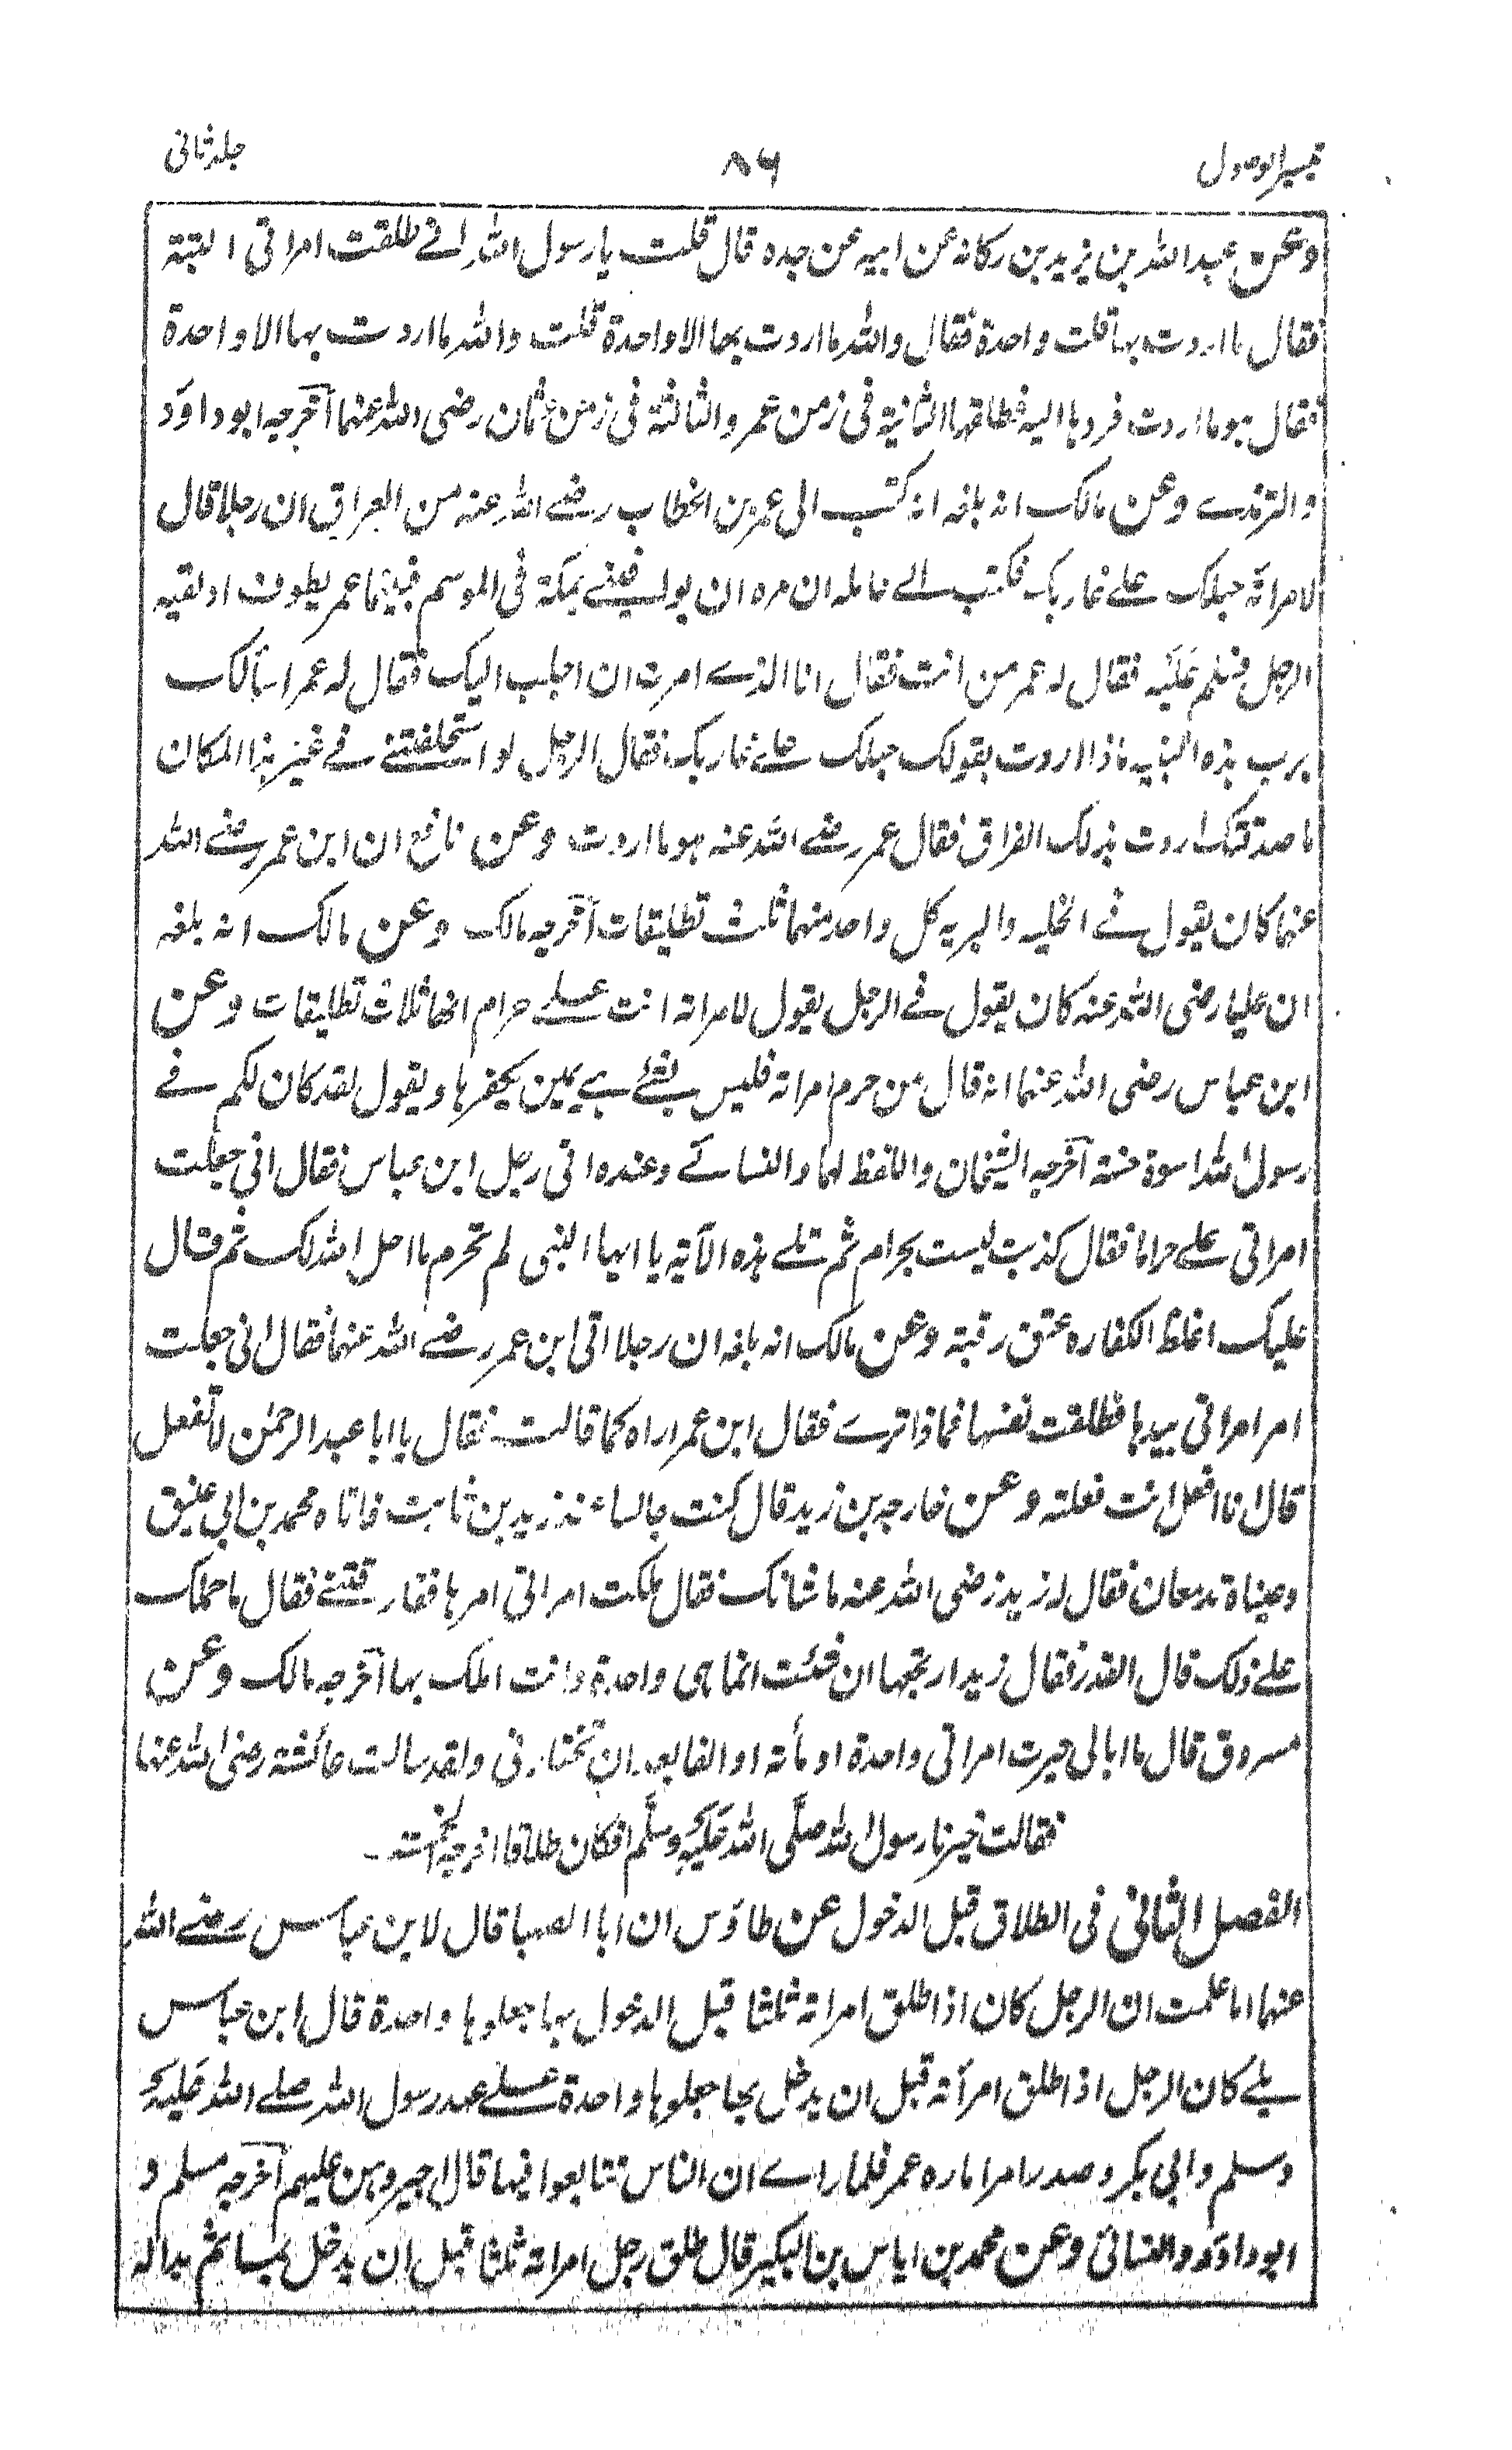 تیسیر الوصول ۸۶ جلد ثانی
وعن عبد الله بن یزید بن رکانه عن ابیه عن جده قال قلت یا رسول الله انے طلقت امراتی البتة
فقال ما اردت بها قلت واحدة فقال والله ما اردت بها الا واحدة قلت والله ما اردت بها الا واحدة
فقال هو ما اردت فردها الیه فطلقها الثانیة فی زمن عمر والثالثة فی زمن عثمان رضی الله عنهما آخرجه ابو داوَد
والترمذے وعن مالک انه بلغه انه کتب الی عمر بن الخطاب رضے الله عنه من العراق ان رجلا قال
لامراته حبلک علے غاربک فکتب الے عامله ان مره ان یوافینے بمکة فی الموسم فبینما عمر یطوف اذ لقیه
الرجل فسلم علَیه فقال له عمر من انت فقال انا الذے امرت ان اجلب الیک فقال له عمر اسألک
برب هذه البنیه ماذا اردت بقولک حبلک علے غاربک فقال الرجل لو استحلفتنے فے غیر هذا المکان
ما صدقتک اردت بذلک الفراق فقال عمر رضے الله عنه هو ما اردت وعن نافع ان ابن عمر رضے الله
عنهما کان یقول فے الخلیه والبریه کل واحد منهما ثلث تطلیقات آخرجه مالک وعن مالک انه بلغه
ان علیا رضی الله عنه کان یقول فے الرجل یقول لامراته انت علے حرام انها ثلاث تطلیقات وعن
ابن عباس رضی الله عنهما انه قال من حرم امراته فلیس بشئے هے یمین یکفرها ویقول لقد کان لکم فے
رسول الله اسوة حسنة آخرجه الشیخان واللفظ لهما والنسائے وعنده اتی رجل ابن عباس فقال انی جعلت
امراتی علے حراما فقال کذبت لیست بحرام ثم تلے هذه الآیة یا ایها النبی لم تحرم ما احل الله لک ثم قال
علیک اغلظ الکفاره عتق رقبة وعن مالک انه بلغه ان رجلا اتی ابن عمر رضے الله عنهما فقال انی جعلت
امر امراتی بیدها فطلقت نفسها فماذا ترے فقال ابن عمر اراه کما قالت فقال یا ابا عبد الرحمٰن لا تفعل
قال انا افعل انت فعلته وعن خارجه بن زید قال کنت جالسا عند زید بن ثابت فاتاه محمد بن ابی عتیق
وعیناه تدمعان فقال له زید رضی الله عنه ما شانک فقال ملکت امراتی امرها ففارقتنے فقال ما حملک
علے ذلک قال القدر فقال زید ارتجعها ان شئت انما هی واحدة وانت املک بها آخرجه مالک وعن
مسروق قال ما ابالی خیرت امراتی واحدة او مأته او الفا بعد ان تختارنی ولقد سالت عائشة رضی الله عنها
فقالت خیرنا رسول الله صلّی الله علَیه وسلّم افکان طلاقا اخرجه الخمسة۔
الفصل الثانی فی الطلاق قبل الدخول عن طاوَس ان ابا الصهبا قال لابن عباس رضے الله
عنهما اما علمت ان الرجل کان اذا طلق امراته ثلثا قبل الدخول بها جعلوها واحدة قال ابن عباس
بلے کان الرجل اذا طلق امرأته قبل ان یدخل بها جعلوها واحدة علے عهد رسول الله صلے الله علَیه
وسلم وابی بکر وصدرا من اماره عمر فلما راے ان الناس تتابعوا فیها قال اجیزوهن علیهم آخرجه مسلم و
ابو داوَد والنسائی وعن محمد بن ایاس بن البکیر قال طلق رجل امراته ثلثا قبل ان یدخل بها ثم بدا له